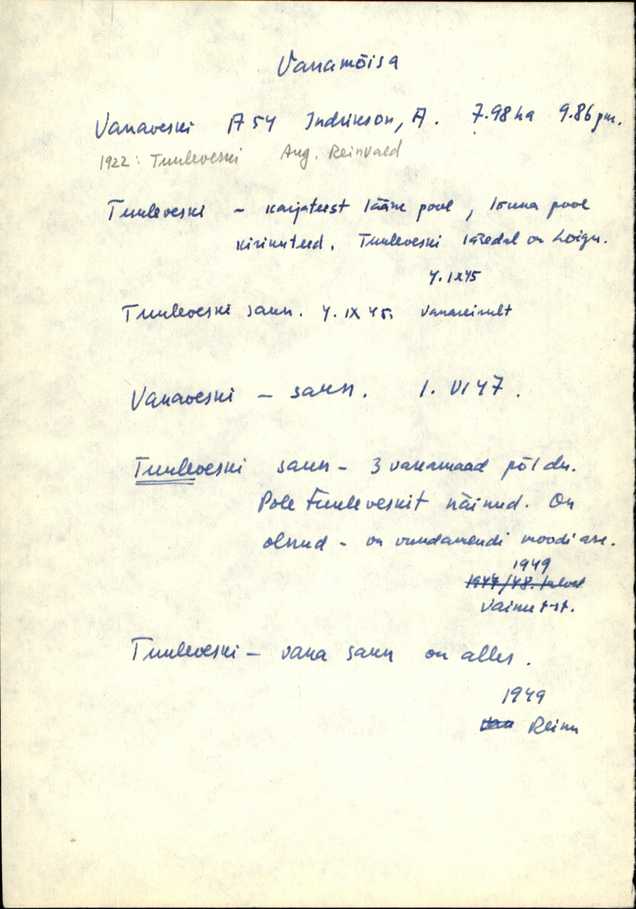 Vanamõisa
Vanaveski A 54 Indrikson, A. 7.98 ha 9.86 pm.
1922: Tuuleveski Aug. Reinvald
Tuuleveski - karjateest lääne pool, lõuna pool
Tuuleveski on
4.IX45
Tuuleveski saun. 4.IX 45.
Vanaveski - saun. 1. VI 47.
Tuuleveski saun - 3 vakamaad põldu.
Pole tuuleveskit näinud. On
olnud - on vundamendi moodi ase.
1949
1947/48. talvel
Tuuleveski - vana saun on alles.
1949
Reinu